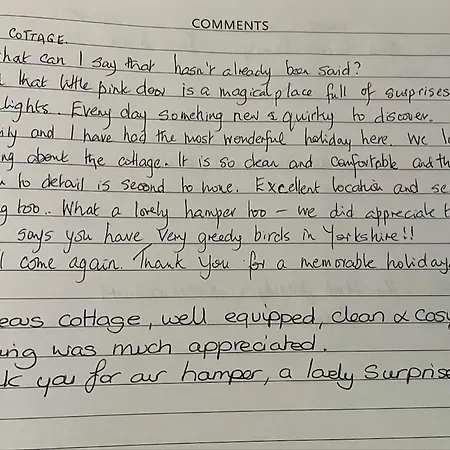 COMMENTS
COTTAGE.
hat can I say that hasn't already been said?
that little pink door is a magical place full of surprises
lights. Every day something new & quirky to discover.
and I have had the most wonderful holiday here. We lo
ng about the cottage. It is so clean and comfortable and th
to detail is second to none. Excellent location and se
ng too.. What a lovely hamper too - we did appreciate t
says you have very greedy birds in Yorkshire!!
l come again. Thank you for a memorable holiday
eous cottage, well equipped, clean & cosy
ing was much appreciated.
k you for our hamper, a lovely surprise